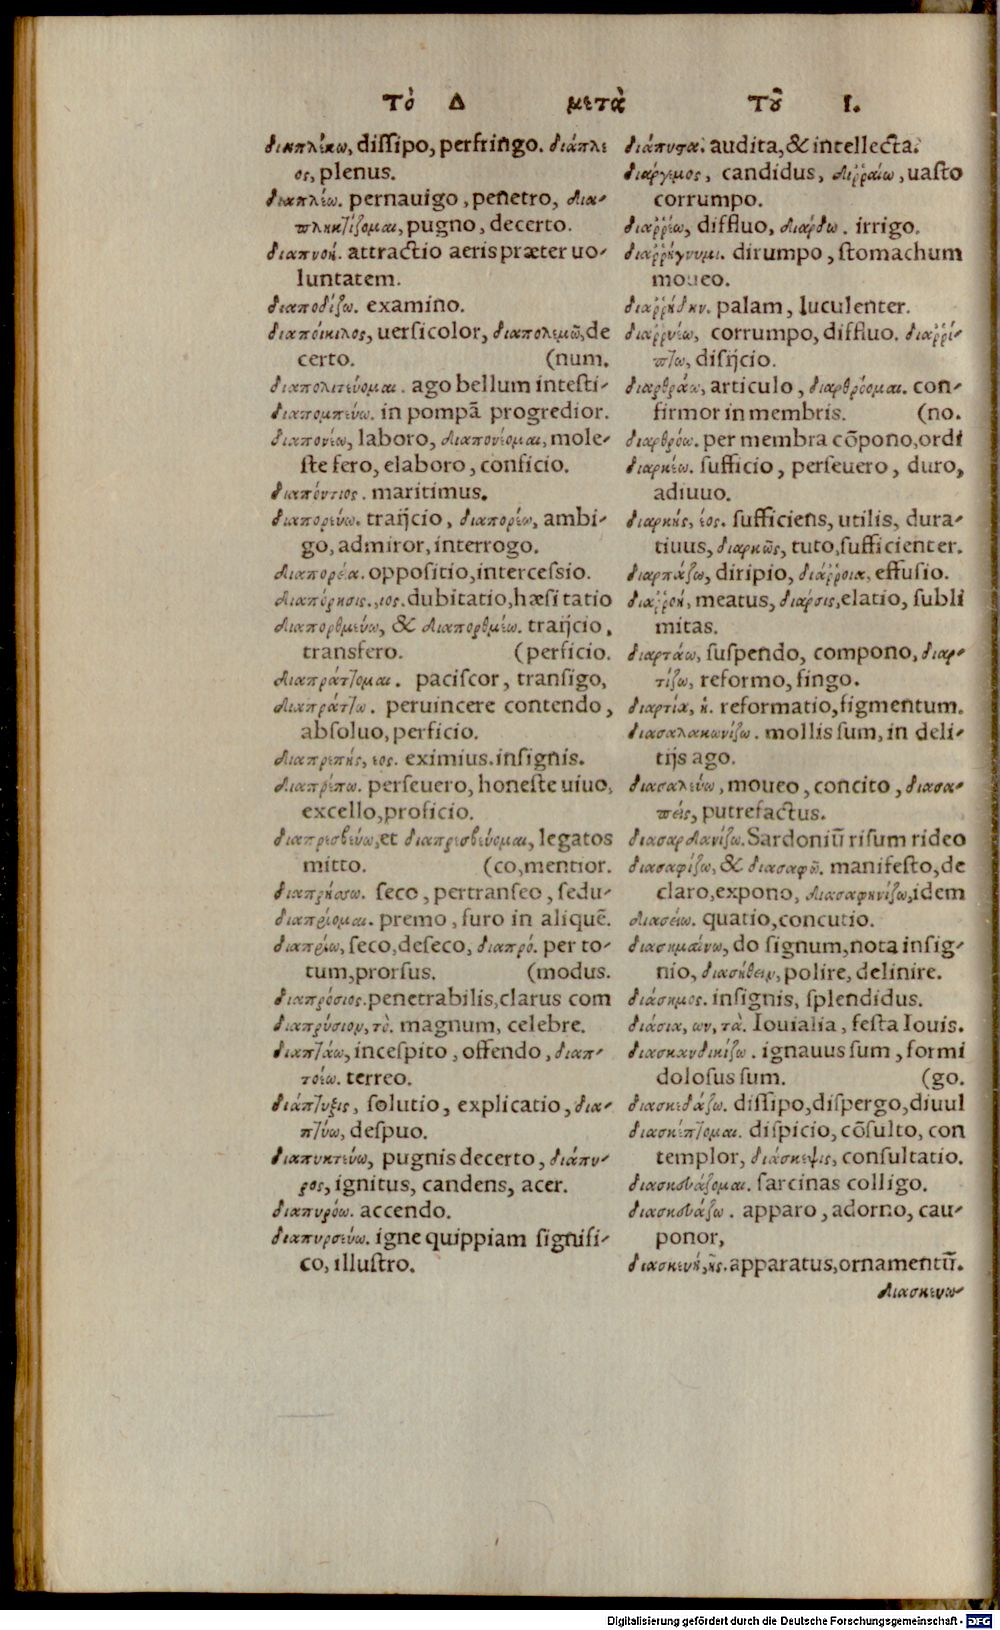 Τὸ Δ μετὰ Τοῦ Ι.
διαπλέκω, dissipo, perfringo. διάπλε
ος, plenus.
διαπλέω. pernauigo, penetro, δια-
πληκτίζομαι, pugno, decerto.
διαπνοή. attractio aeris præter uo-
luntatem.
διαποδίζω. examino.
διαποίκιλος, uersicolor, διαπολεμῶ, de
certo. (num.
διαπολιτεύομαι. ago bellum intesti-
διαπομπεύω. in pompã progredior.
διαπονέω, laboro, διαπονέομαι, mole-
ste fero, elaboro, conficio.
διαπόντιος. maritimus.
διαπορεύω. traijcio, διαπορέω, ambi-
go, admiror, interrogo.
διαπορέια. oppositio, intercessio.
διαπόρησις., ιος. dubitatio, hæsitatio
διαπορθμεύω, & διαπορθμέω. traijcio,
transfero. (perficio.
διαπράττομαι. paciscor, transigo,
διαπράττω. peruincere contendo,
absoluo, perficio.
διαπρεπής, εος. eximius. insignis.
διαπρέπω. perseuero, honeste uiuo,
excello, proficio.
διαπρεσβεύω, et διαπρεσβεύομαι, legatos
mitto. (co, mentior.
διαπρήσσω. seco, pertranseo, sedu-
διαπρίομαι. premo, furo in aliquẽ.
διαπρίω, seco, deseco, διαπρό. per to-
tum, prorsus. (modus.
διαπρόσιος. penetrabilis, clarus com
διαπρύσιον, τὸ. magnum, celebre.
διαπταίω, incespito, offendo, διαπ-
τοέω. terreo.
διάπτυξις, solutio, explicatio, δια-
πτύω, despuo.
διαπυκτεύω, pugnis decerto, διάπυ-
ρος, ignitus, candens, acer.
διαπυρόω. accendo.
διαπυρσεύω. igne quippiam signifi-
co, illustro.
διάπυστα. audita, & intellecta.
διάργεμος, candidus, διῤῥαίω, uasto
corrumpo.
διαῤῥέω, diffluo, διάρδω. irrigo.
διαῤῥήγνυμι. dirumpo, stomachum
moueo.
διαῤῥήδην. palam, luculenter.
διαῤῥυέω, corrumpo, diffluo. διαῤῥί-
πτω, disijcio.
διαρθράω, articulo, διαρθρόομαι. con-
firmor in membris. (no.
διαρθρόω. per membra cõpono, ordi
διαρκέω. sufficio, perseuero, duro,
adiuuo.
διαρκής, έος. sufficiens, utilis, dura-
tiuus, διαρκῶς, tuto, sufficienter.
διαρπάζω, diripio, διάῤῥοια, effusio.
διαῤῥοή, meatus, διάρσις, elatio, subli
mitas.
διαρτάω, suspendo, compono, διαρ-
τίζω, reformo, fingo.
διαρτία, ἡ. reformatio, figmentum.
διασαλακωνίζω. mollis sum, in deli-
tijs ago.
διασαλεύω, moueo, concito, διασα-
πείς, putrefactus.
διασαρδανίζω. Sardoniũ risum rideo
διασαφίζω, & διασαφῶ. manifesto, de
claro, expono, διασαφηνίζω, idem
διασείω. quatio, concutio.
διασημαίνω, do signum, nota insig-
nio, διασήθειν, polire, delinire.
διάσημος. insignis, splendidus.
διάσια, ων, τὰ. Iouialia, festa Iouis.
διασκανδικίζω. ignauus sum, formi
dolosus sum. (go.
διασκεδάζω. dissipo, dispergo, diuul
διασκέπτομαι. dispicio, cõsulto, con
templor, διάσκεψις, consultatio.
διασκευάζομαι. sarcinas colligo.
διασκευάζω. apparo, adorno, cau-
ponor,
διασκευή, ῆς. apparatus, ornamentũ.
διασκευω-
Digitalisierung gefördert durch die Deutsche Forschungsgemeinschaft - DFG